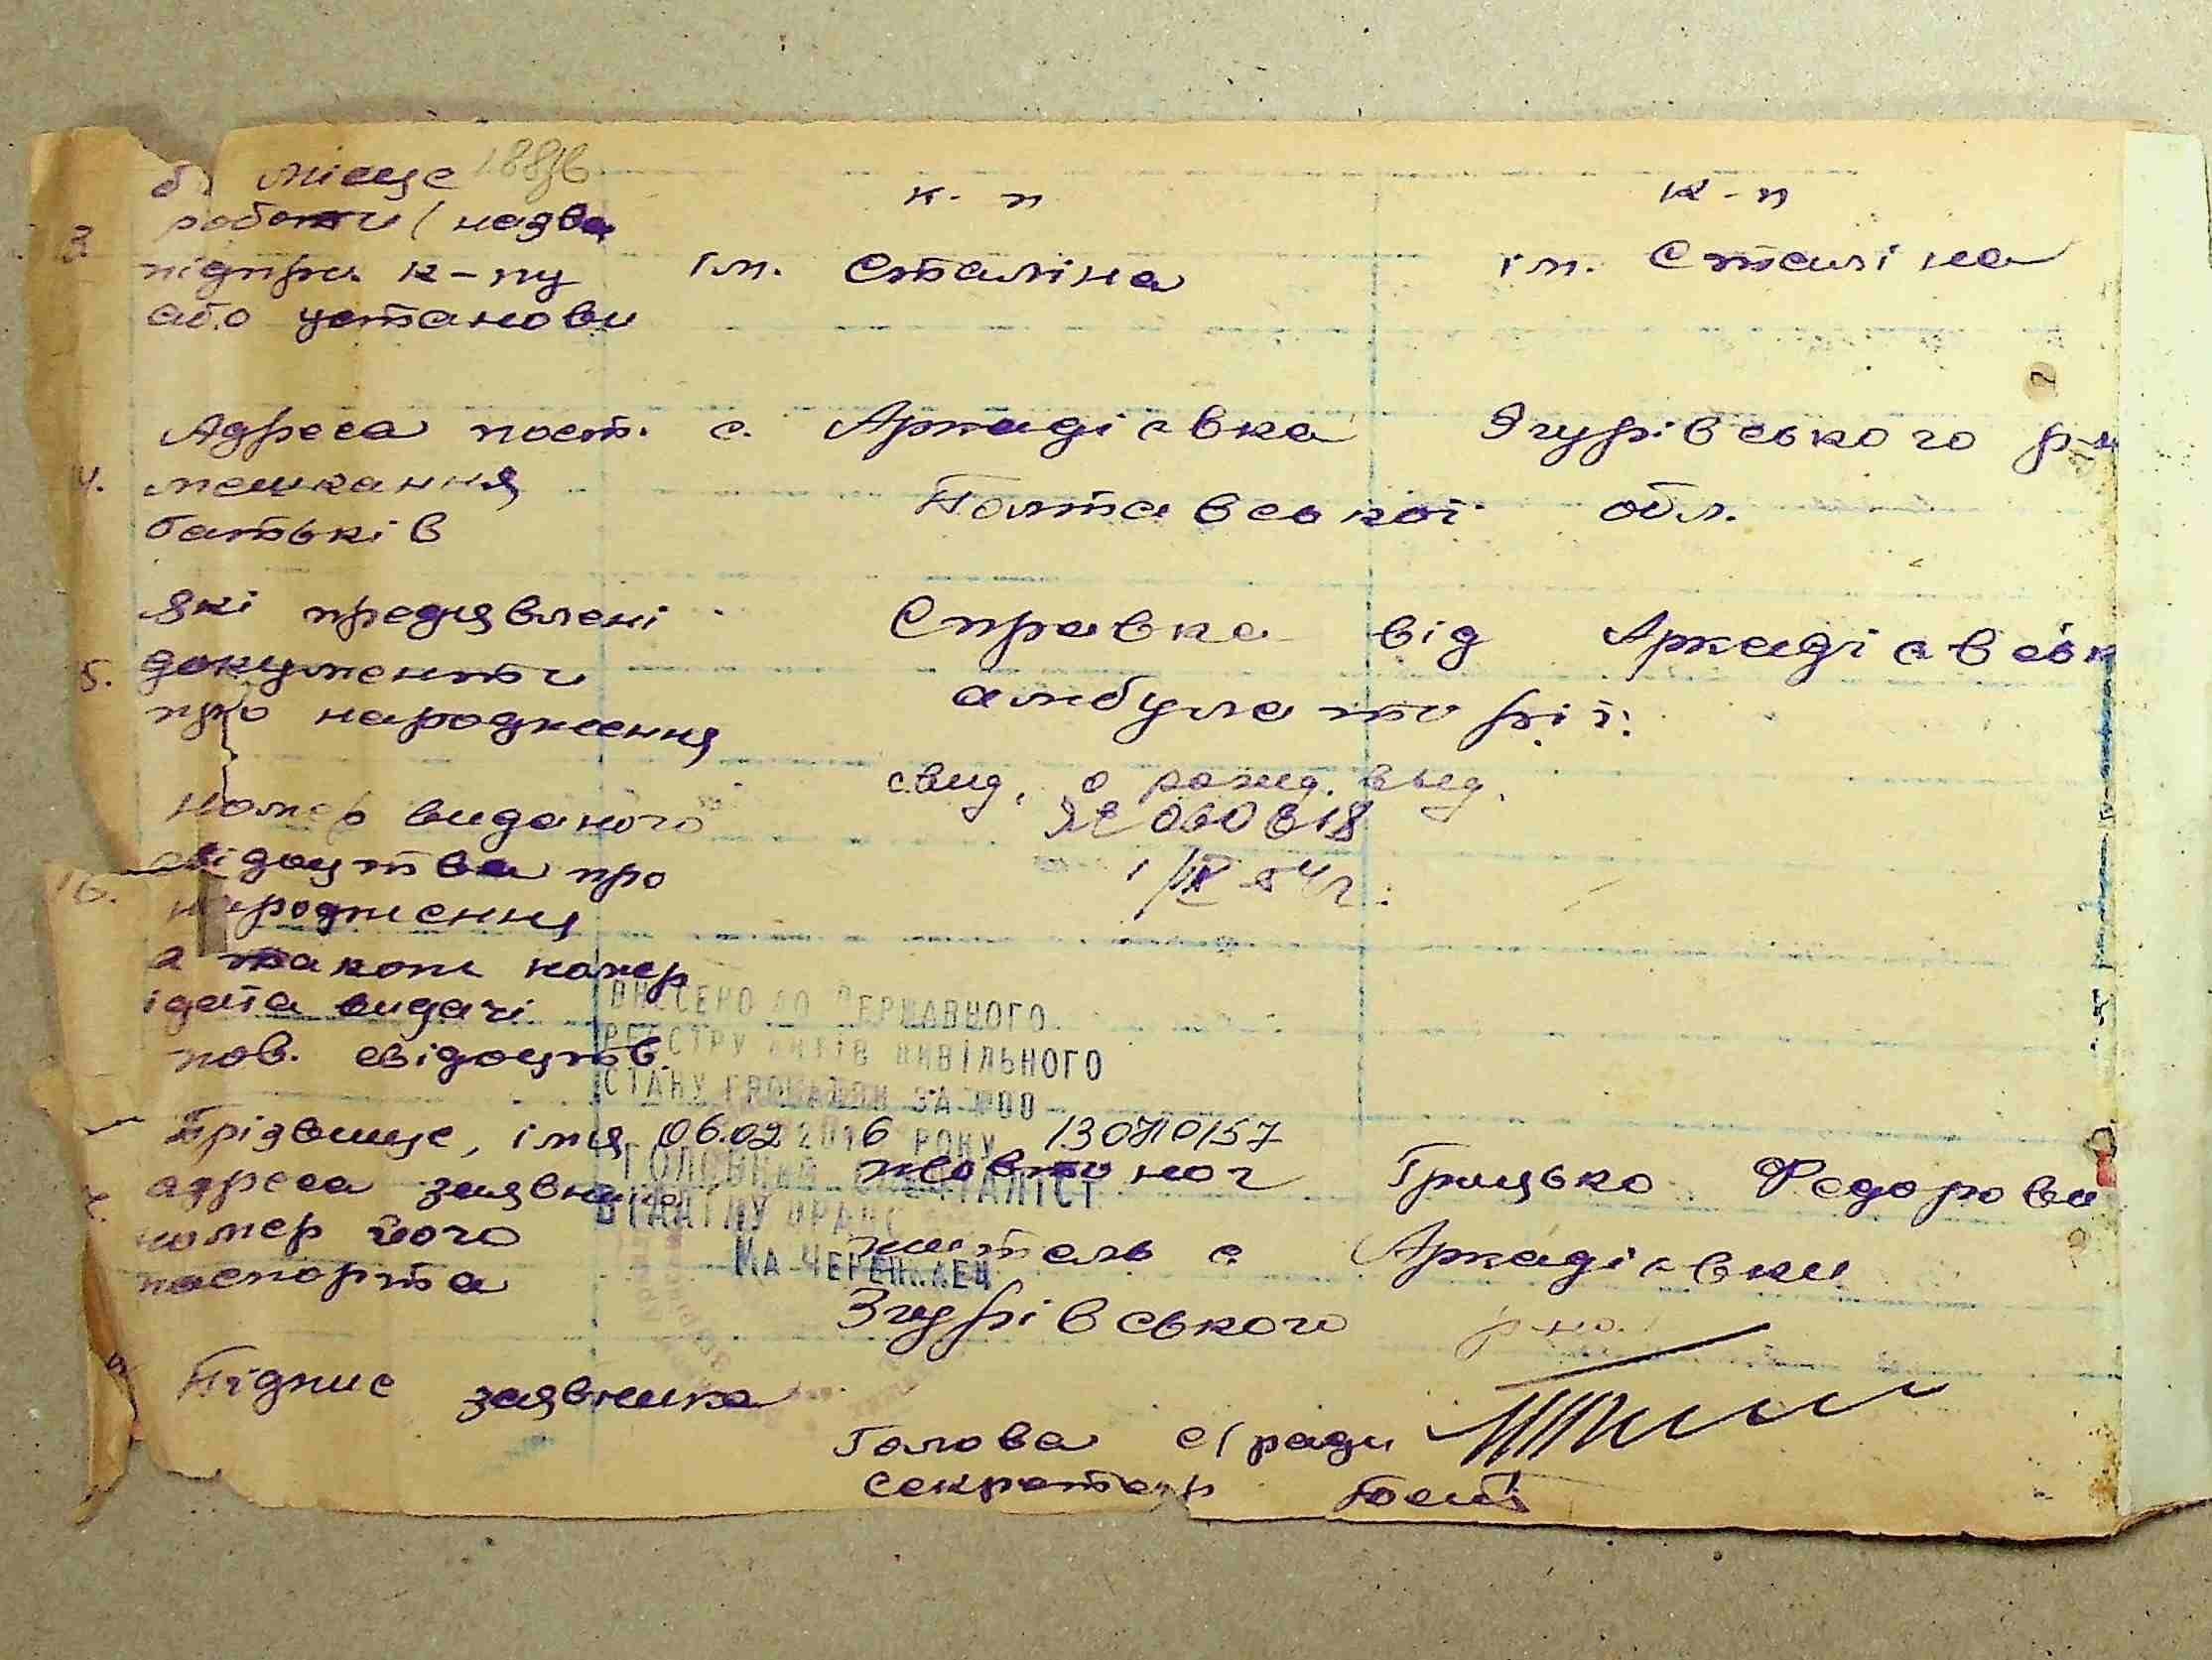 б) місце
роботи (назва к-п к-п
3. підпри. к-пу ім. Сталіна ім. Сталіна
або установи
Адреса пост. с. Аркадієвка Згурівського р-н
4. мешкання Полтавської обл.
батьків
Які предиявлені Справка від Аркадієвськ
5. документи амбулаторії.
про народження
свид. о рожд. выд.
Номер виданого 060618
свідоцтва про 1/IX 54 г.
6. народження
а також номер
і дата видачі
пов. свідоцтв.
ВНЕСЕНО ДО ДЕРЖАВНОГО
РЕЄСТРУ АКТІВ ЦИВІЛЬНОГО
СТАНУ ГРОМАДЯН ЗА №00
Прізвище, імя 06.02 2016 РОКУ 130710157
адреса заявника Жовтоног Грицько Федорови
ГОЛОВНИЙ СПЕЦІАЛІСТ
ВІДДІЛУ ДРАЦС
номер його житель с Аркадієвки
М.А. ЧЕРЕНКАЕЦ
паспорта Згурівського р-но.
Підпис заявника
Голова с/ради
Секретарь